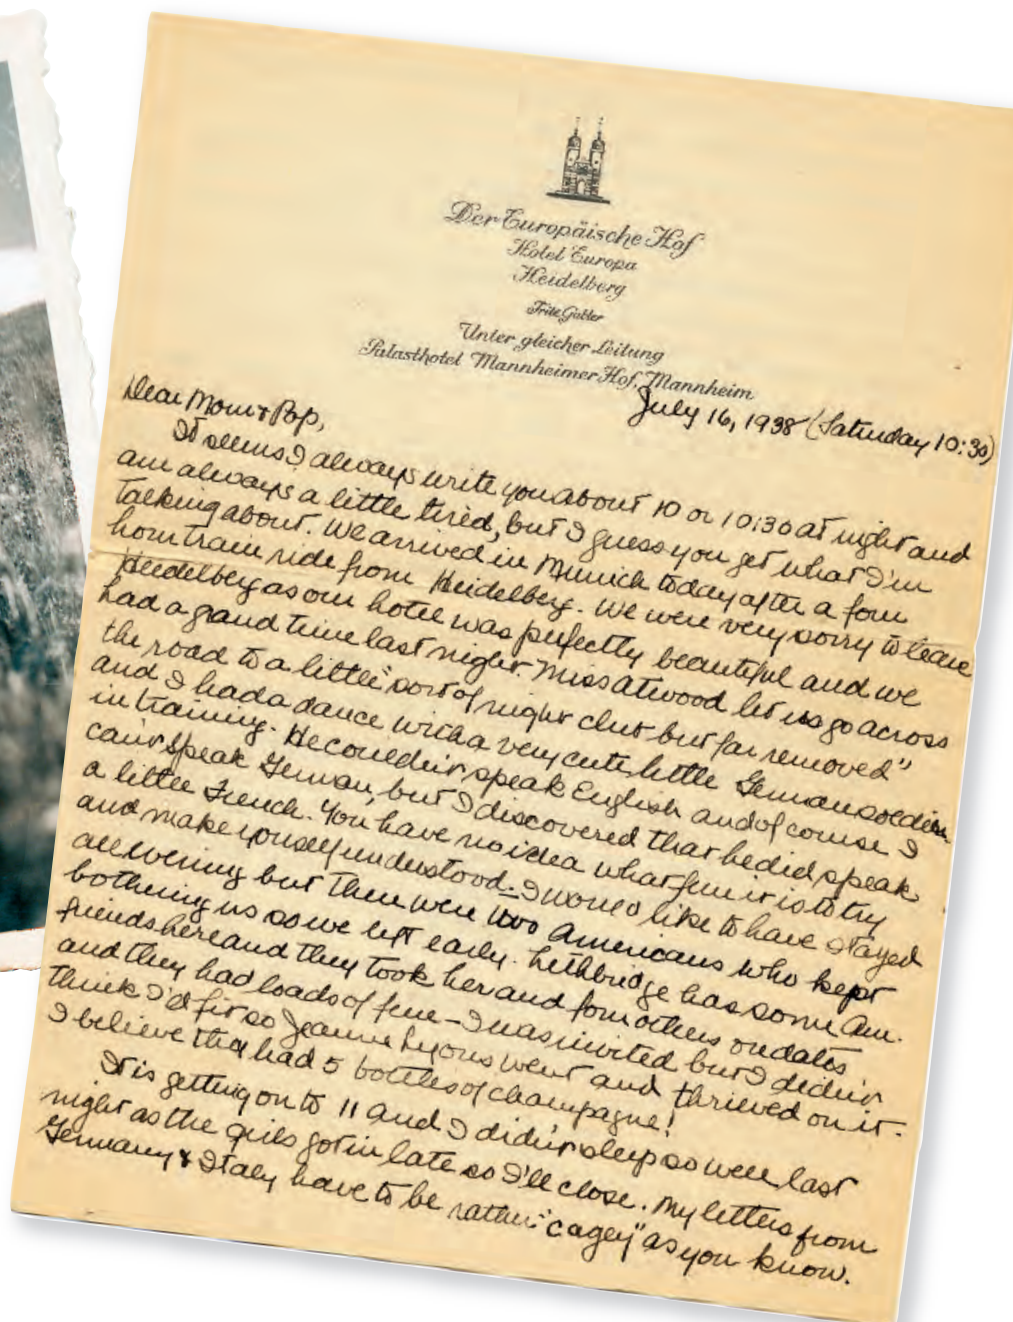 Der Europäische Hof
Hotel Europa
Heidelberg
Fritz Gabler
Unter gleicher Leitung
Palasthotel Mannheimer Hof, Mannheim
July 16, 1938 (Saturday 10:30)
Dear Mom & Pop,
It seems I always write you about 10 or 10:30 at night and
am always a little tired, but I guess you get what I'm
talking about. We arrived in Munich today after a four
hour train ride from Heidelberg. We were very sorry to leave
Heidelberg as our hotel was perfectly beautiful and we
had a grand time last night. Miss Atwood let us go across
the road to a little "sort of night club but far removed"
and I had a dance with a very cute little German soldier
in training. He couldn't speak English and of course I
can't speak German, but I discovered that he did speak
a little French. You have no idea what fun it is to try
and make yourself understood. I would like to have stayed
all evening but there were two Americans who kept
bothering us so we left early. Lethbridge has some Am.
friends here and they took her and four others on dates
and they had loads of fun - I was invited but I didn't
think I'd fit so Jeanne Lyons went and thrieved on it.
I believe they had 5 bottles of champagne!
It is getting on to 11 and I didn't sleep so well last
night as the girls got in late so I'll close. My letters from
Germany & Italy have to be rather "cagey" as you know.